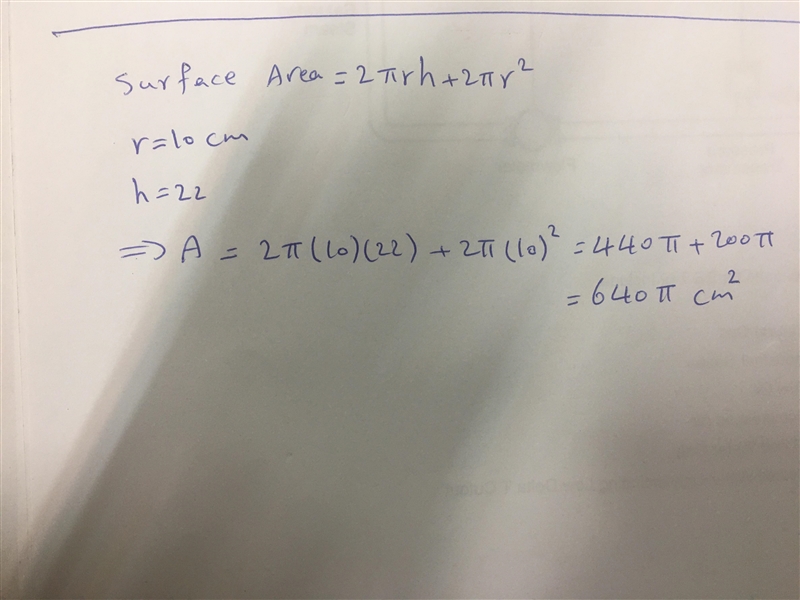 Surface Area = 2πrh + 2πr²
r = 10 cm
h = 22
⇒ A = 2π(10)(22) + 2π(10)² = 440π + 200π
= 640π cm²